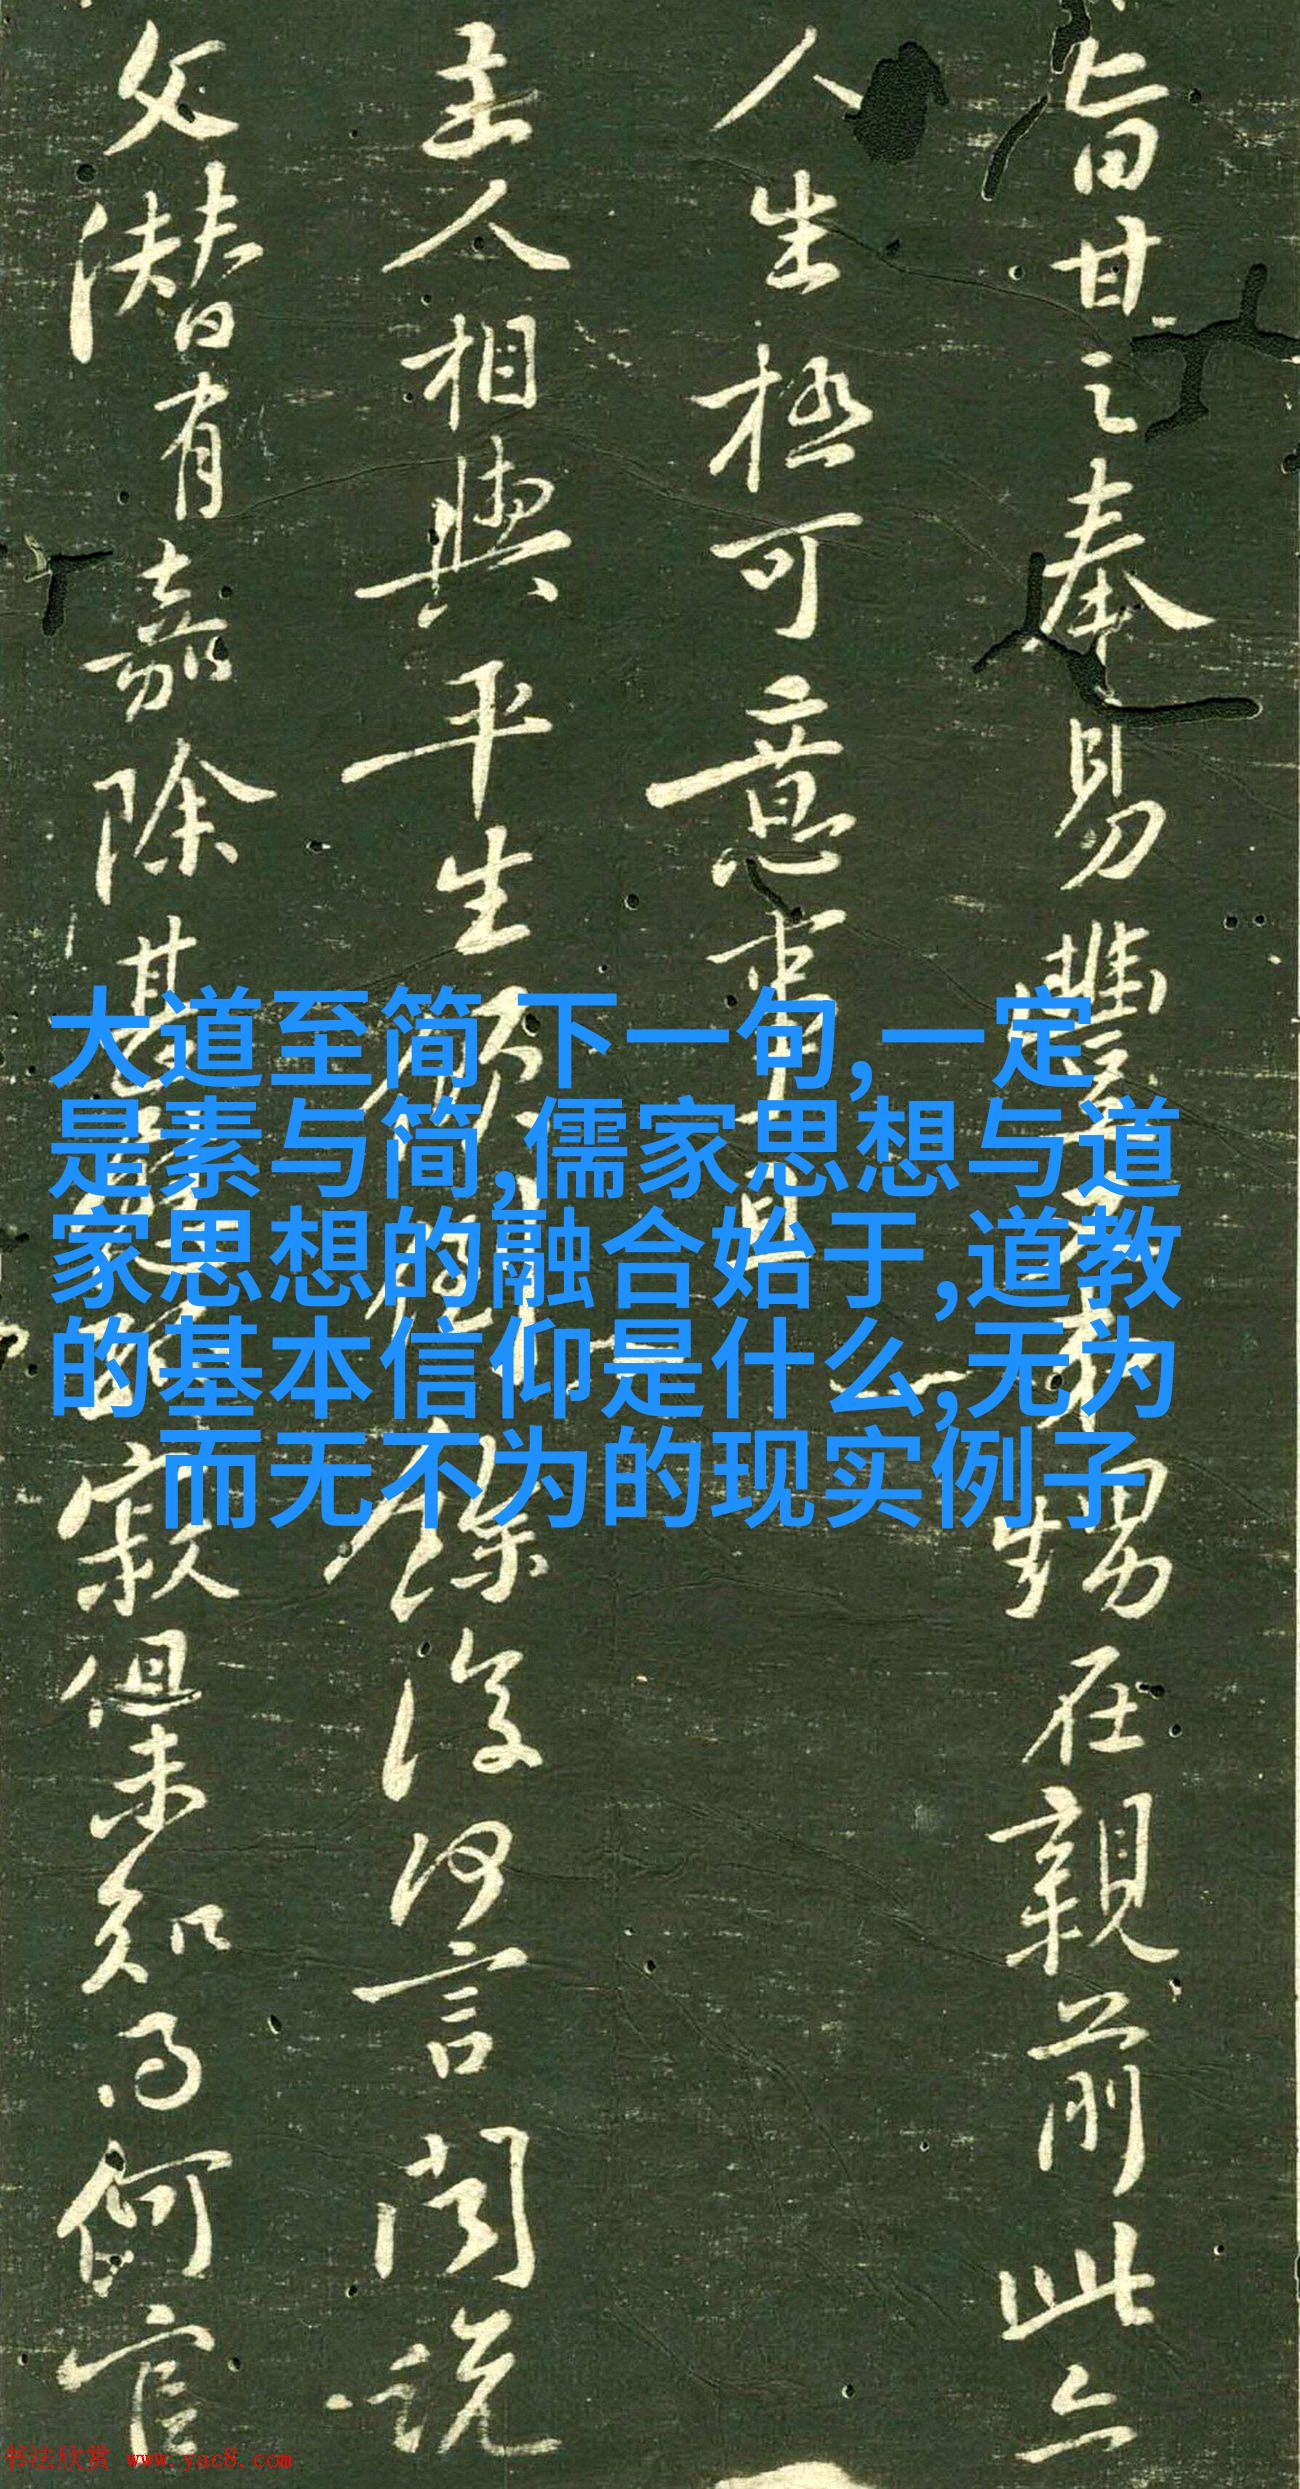 旨甘之奉易豐
甥在親前此亦
人生極可意事
主人相與平生
餘復何言閒說
父潛有嘉除甚
寂但未知得何官
大道至简 下一句,一定
是素与简,儒家思想与道
家思想的融合始于,道教
的基本信仰是什么,无为
而无不为的现实例子
书法欣赏 www.yac8.com